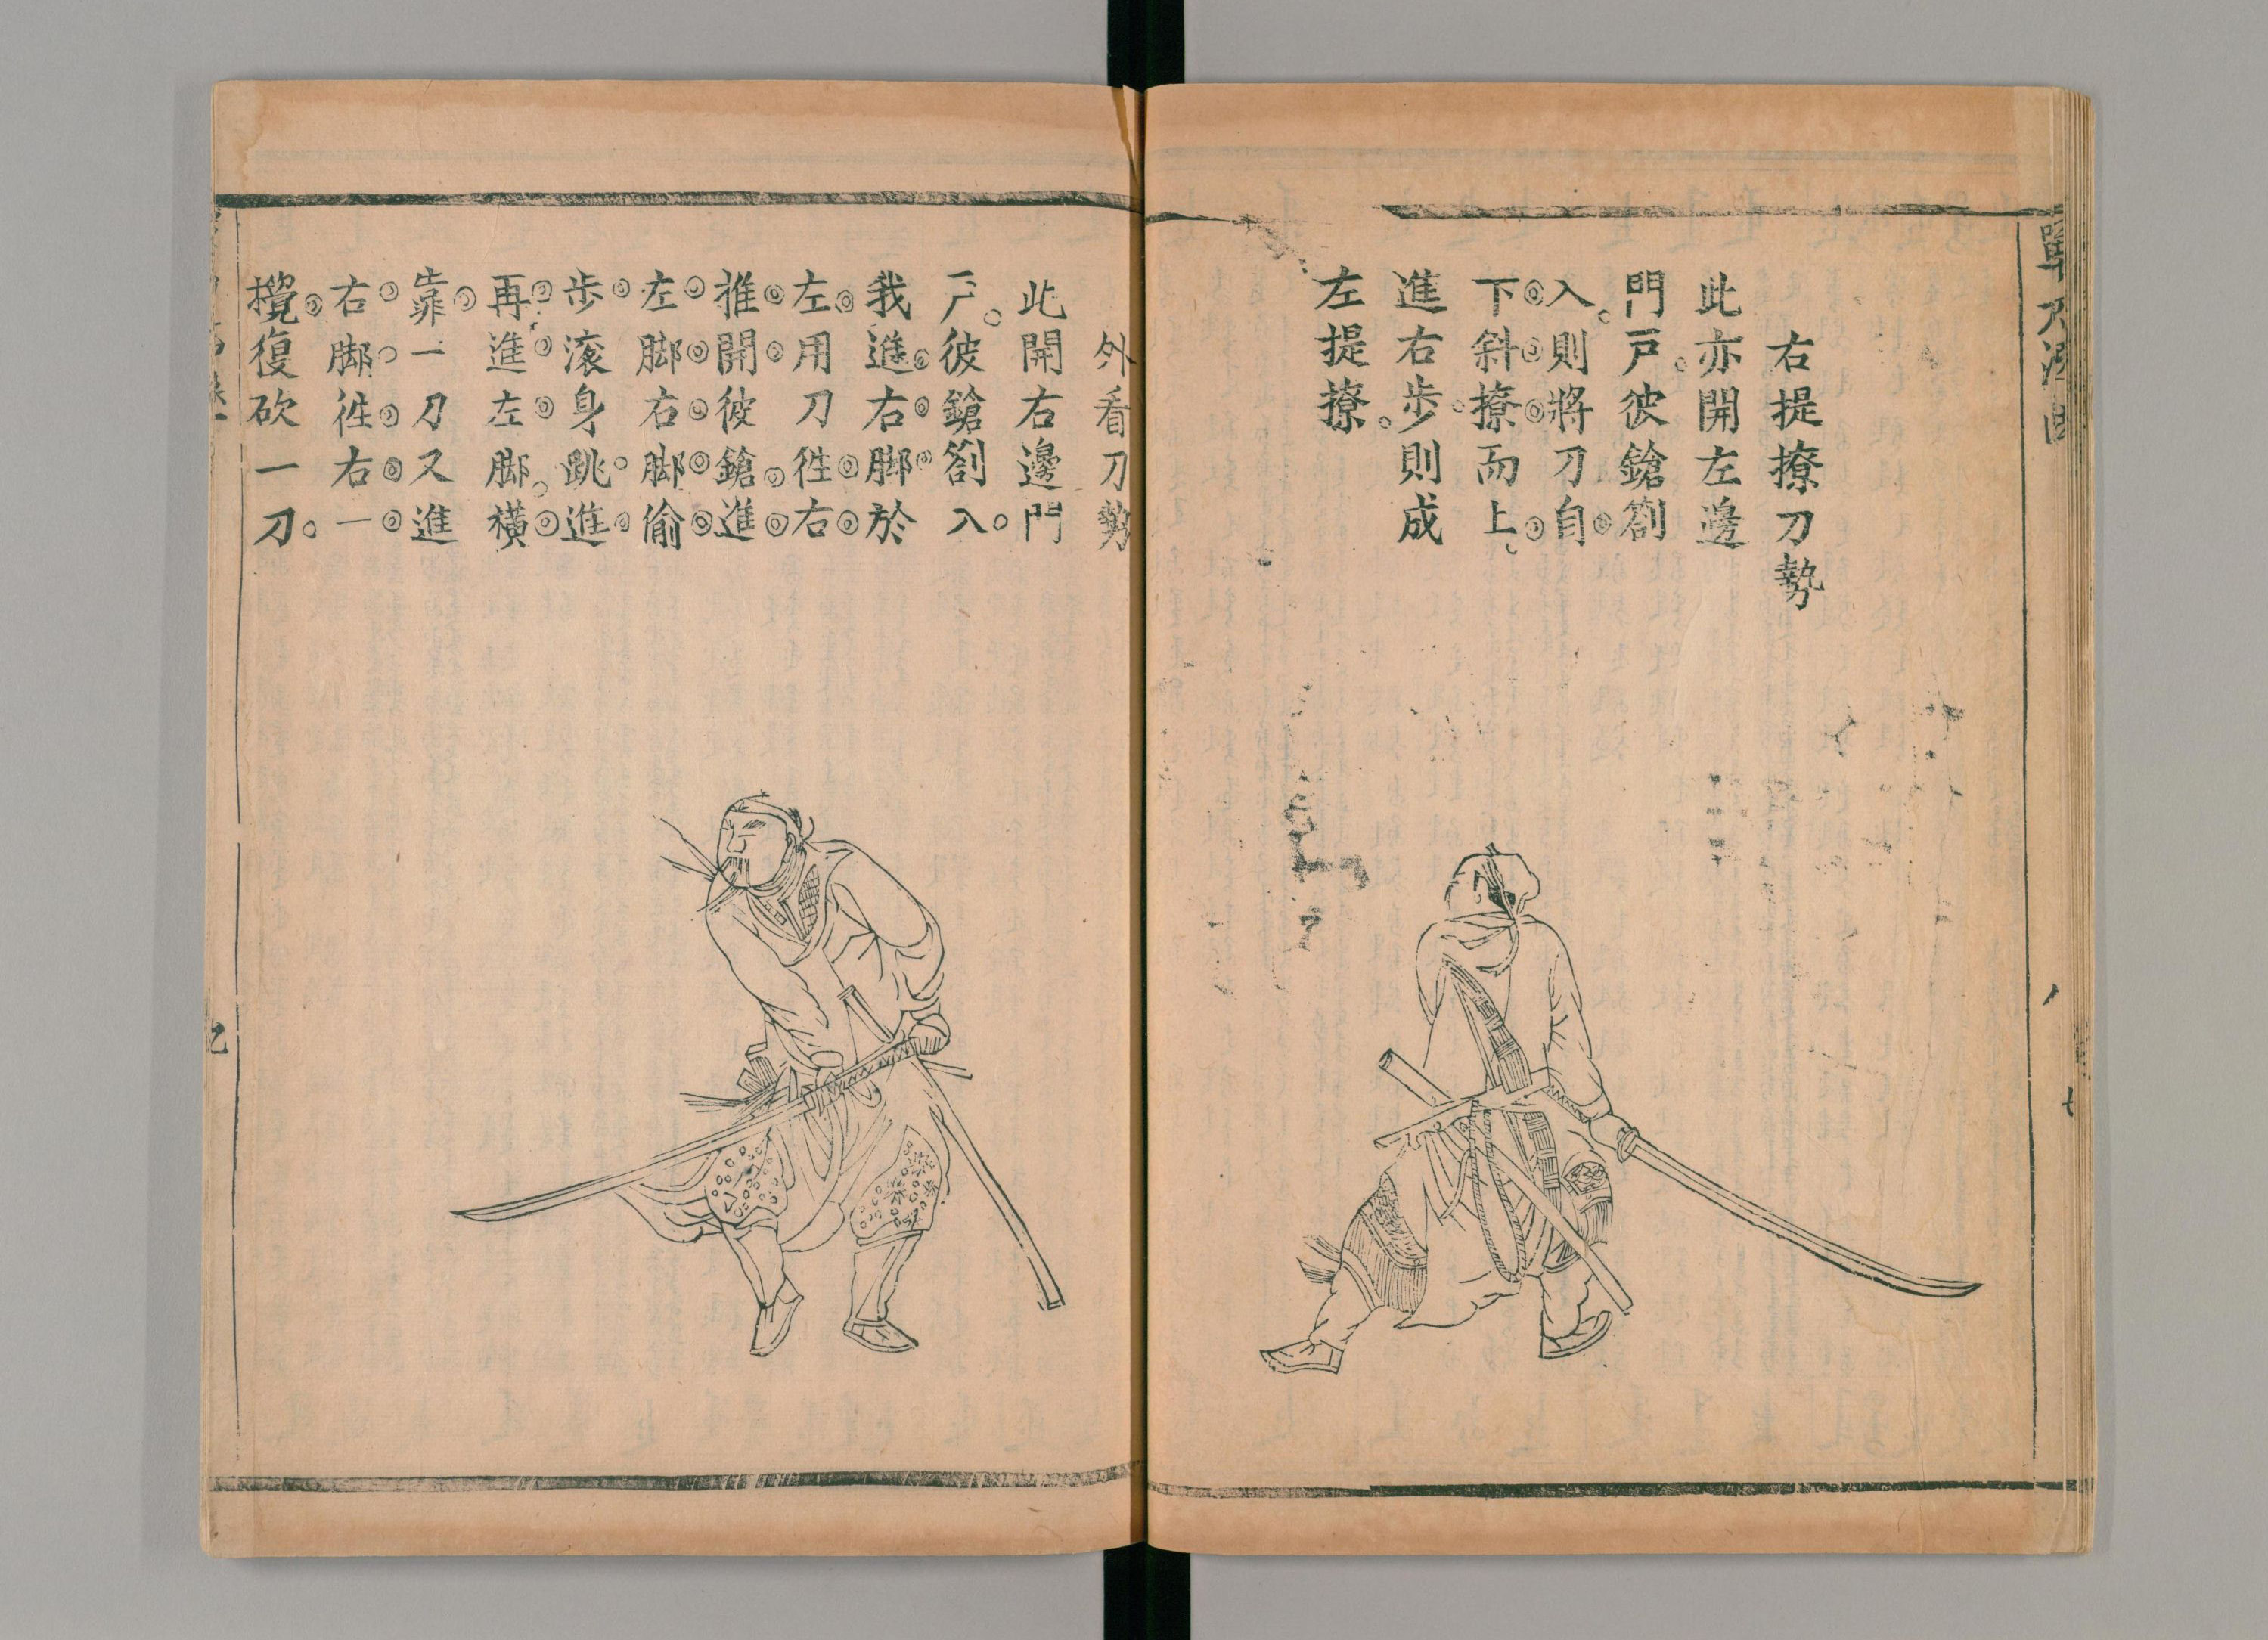 右提撩刀勢
此亦開左邊
門戸。彼鎗劄
入。則將刀自
下斜撩而上。
進右步。則成
左提撩。
外看刀勢
此開右邊門
戸。彼鎗劄入。
我進右脚於
左。用刀徃右
推開彼鎗。進
左脚。右脚偷
步滚身跳。進
再進左脚。橫
靠一刀又進
右脚徃右一
攪復砍一刀。